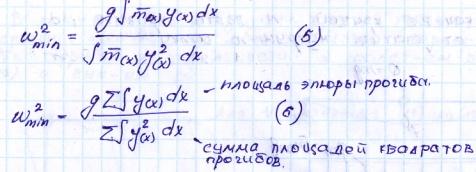 ω²min = g∫m̄(x)y(x)dx / ∫m̄(x)y²(x)dx (5)
ω²min - gΣ∫y(x)dx / Σ∫y²(x)dx (6)
площадь эпюры прогиба.
сумма площадей квадратов
прогибов.